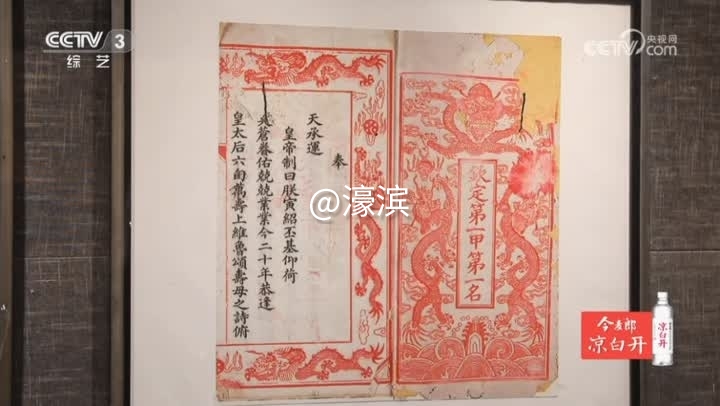 CCTV 3
综艺
央视网
CCTV.com
欽定第一甲第一名
奉
天承運
皇帝制曰朕寅紹丕基仰荷
蒼眷佑兢兢業業今二十年恭逢
皇太后六旬萬壽上維魯頌壽母之詩俯
@濠滨
今麦郎
凉白开
凉白开